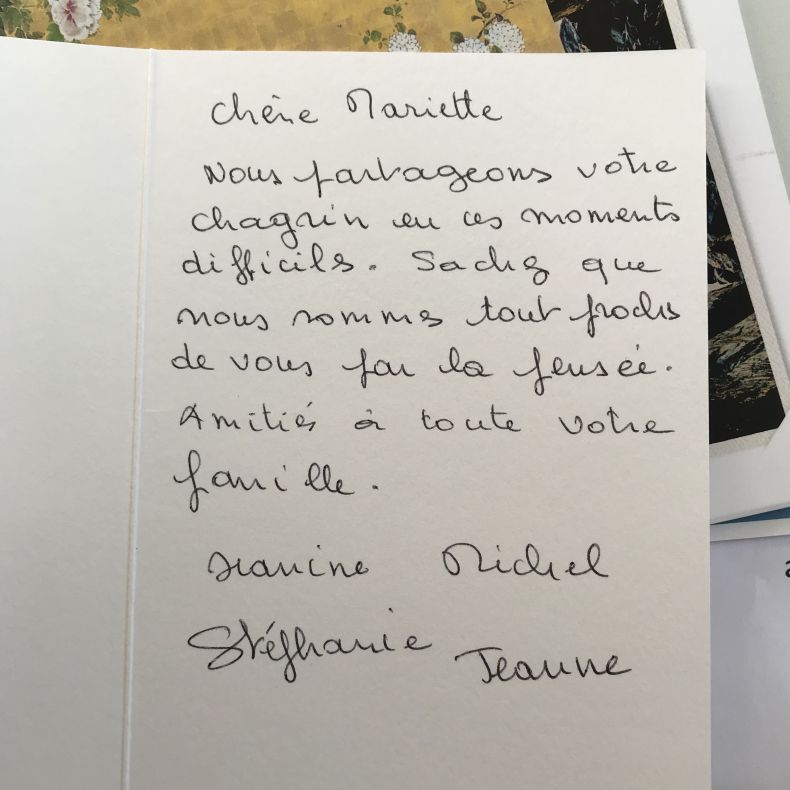 Chère Mariette
Nous partageons votre
chagrin en ces moments
difficils. Sachez que
nous sommes tout proches
de vous par la pensée.
Amitiés à toute votre
famille.
Jeanine Michel
Stéphanie
Jeanne